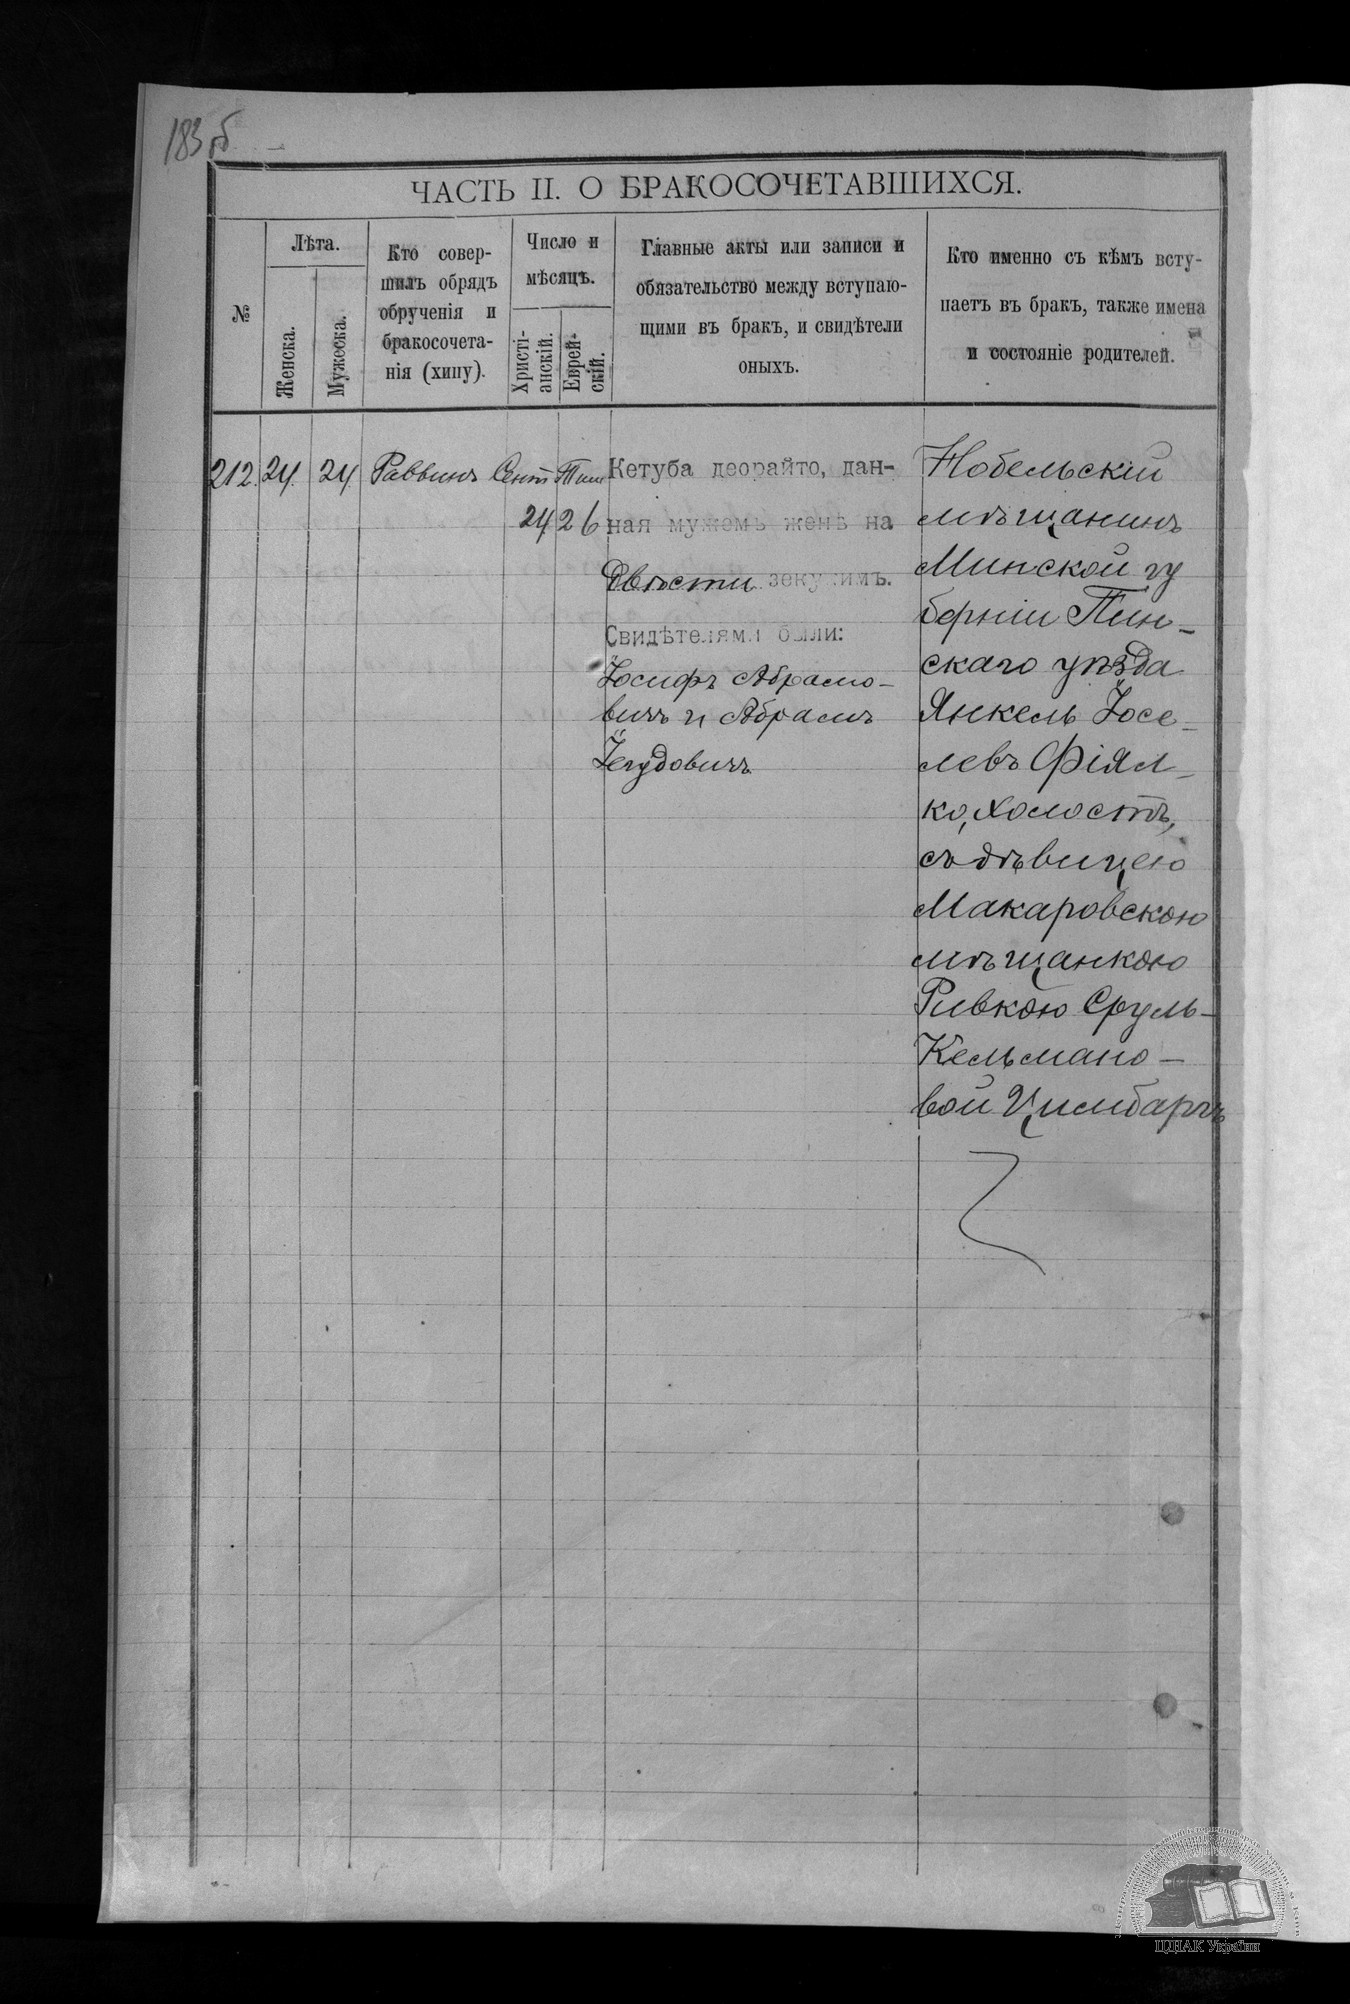 183 об
ЧАСТЬ II. О БРАКОСОЧЕТАВШИХСЯ.
№
Лѣта.
Женска.
Мужеска.
Кто совер-
шилъ обрядъ
обрученія и
бракосочета-
нія (хипу).
Число и
мѣсяцъ.
Христі-
анскій.
Еврей-
скій.
Главные акты или записи и
обязательство между вступаю-
щими въ бракъ, и свидѣтели
оныхъ.
Кто именно съ кѣмъ всту-
паетъ въ бракъ, также имена
и состояніе родителей.
212.
24.
24
Раввинъ
Сент
24
Тиш
26
Кетуба деорайто, дан-
ная мужемъ женѣ на
Двѣсти зекукимъ.
Свидѣтелями были:
Іосифъ Абрамо-
вичъ и Абрамъ
Іегудовичъ
Нобельскій
мѣщанинъ
Минской гу
берніи Пин-
скаго уѣзда
Янкель Іосе-
левъ Фіял-
ко, холостъ,
съ дѣвицею
Макаровскою
мѣщанкою
Ривкою Сруль-
Кельмано-
вой Цимбаргъ
ЦДІАК України